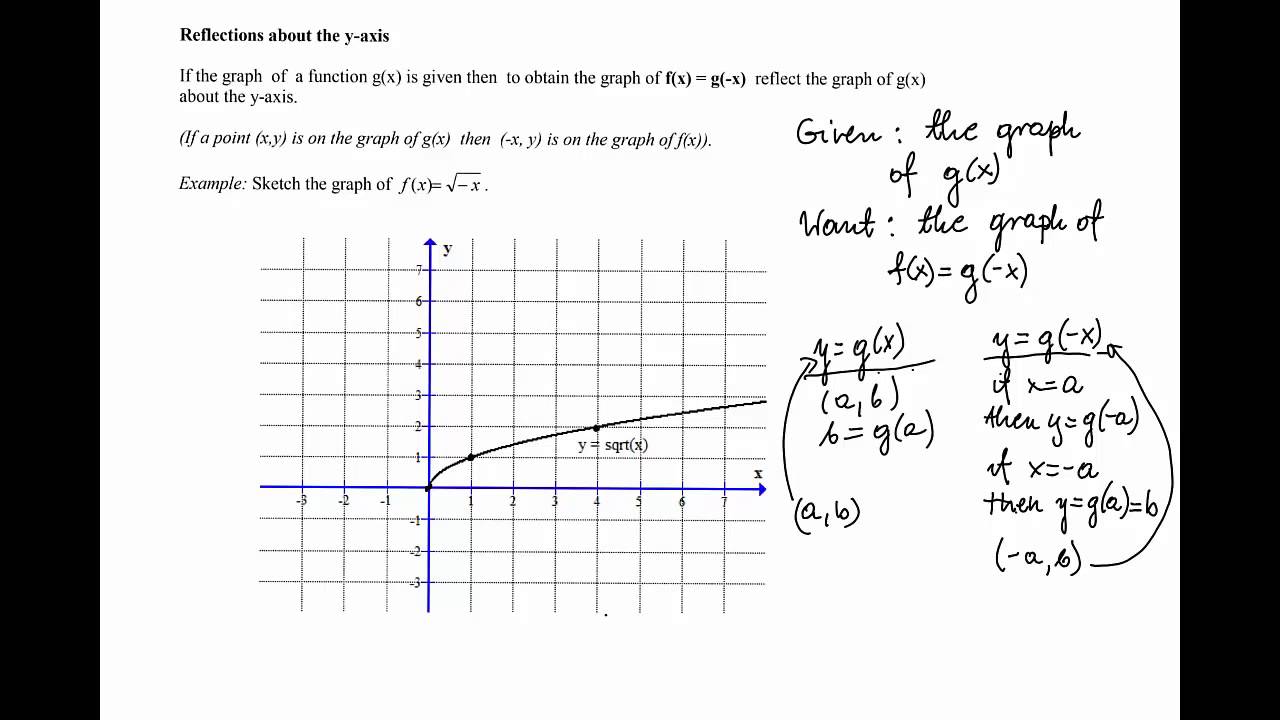 Reflections about the y-axis
If the graph of a function g(x) is given then to obtain the graph of f(x) = g(-x) reflect the graph of g(x)
about the y-axis.
(If a point (x,y) is on the graph of g(x) then (-x, y) is on the graph of f(x)).
Example: Sketch the graph of f(x)=√-x .
y
7
6
5
4
3
2
1
-1
-2
-3
y = sqrt(x)
x
-3 -2 -1 1 2 3 4 5 6 7
Given : the graph
of g(x)
Want : the graph of
f(x) = g(-x)
y = g(x)
(a, b)
b = g(a)
(a, b)
y = g(-x)
if x = a
then y = g(-a)
if x = -a
then y = g(a) = b
(-a, b)